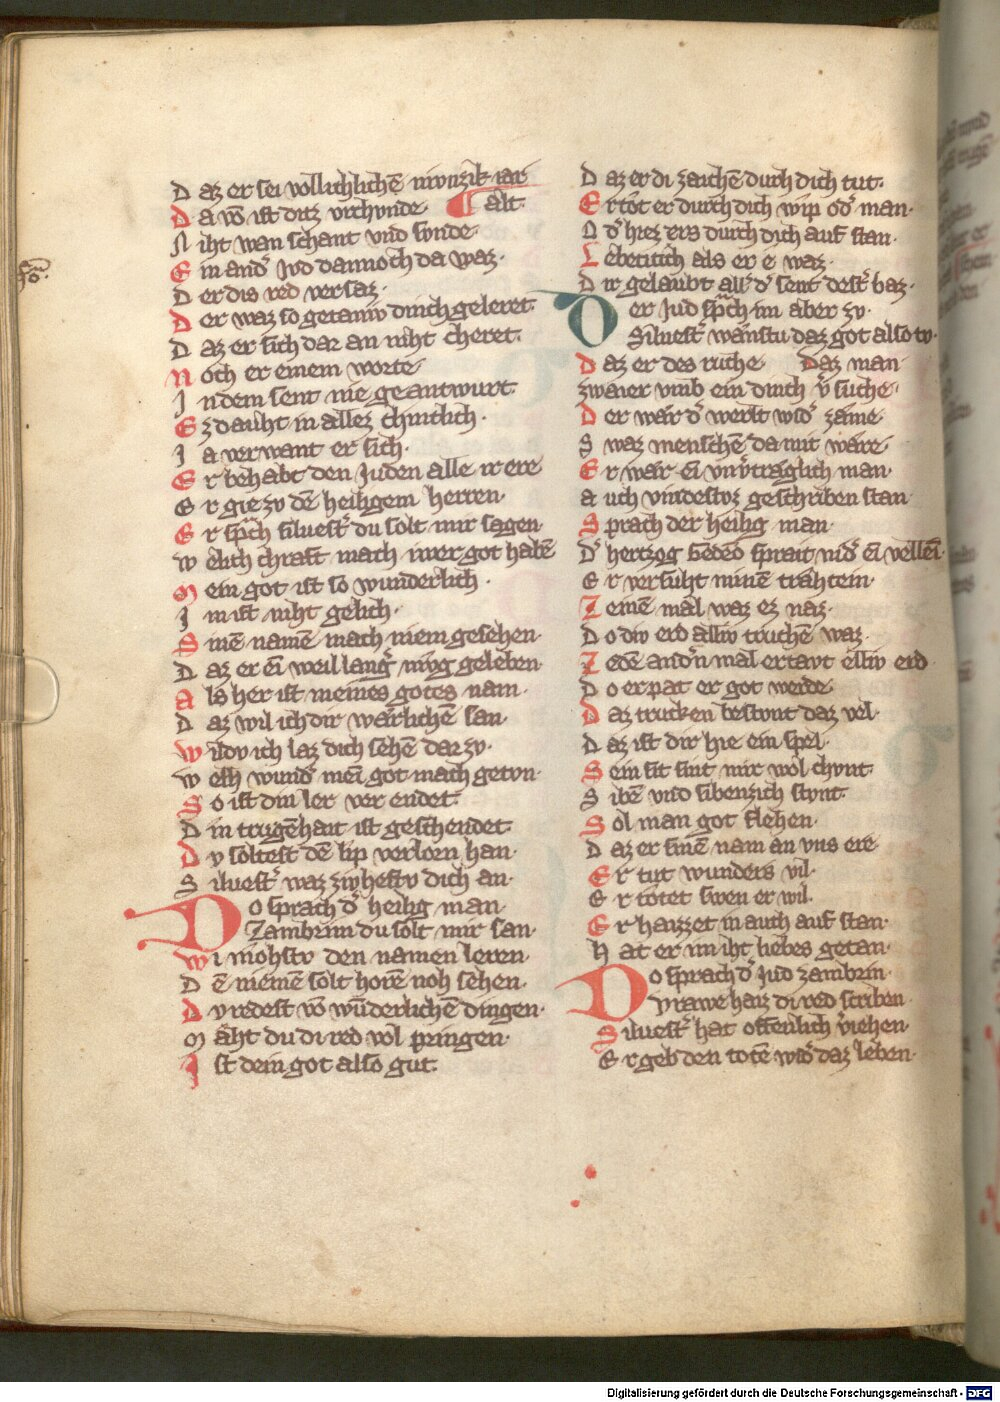 D az er sei vollichlichē nivnzik iar
D a vō ist ditz vrchvnde ¶ alt·
N iht wan schant vnd svnde·
E in and̄ Jvd dannoch da waz·
D er dis red versaz·
D er waz so getaniv dinch geleret·
D az er sich dar an niht cheret·
N och er einem worte
J n dem sent nie geantwurt
E z dauht in allez chintlich·
J a verwant er sich·
E r behabt den Juden alle ir ere
E r gie zv dē heiligem herren·
E r sp͛ch siluest͛ du solt mir sagen
W elich chraft mach iwer got habē
M ein got ist so wunderlich·
J m ist niht gelich·
S inē namē mach niem gesehen·
D az er eī weil lang͛ mvg geleben·
A ls her ist meines gotes nam·
D az wil ich dir wærlichē san·
W ildv ich laz dich sehē dar zv·
W elh wund͛ meī got mach getvn·
S o ist din ler verendet·
D in trugēhait ist geschendet·
D v soltest dē lip verlorn han·
S iluest͛ waz zivhestv dich an·
D o sprach d͛ heilig man
Zambrim du solt mir san·
W i mohstv den namen leren·
D ē niemē solt horē noh sehen·
D v redest vō wūderlichē dingen·
M aht du di red wol pringen·
J st dein got also gut·
D az er di zaichē durch dich tut·
E r tot er durch dich wip od͛ man·
O d͛ hiez ers durch dich auf stan·
L ebetitich als er e waz·
D ir gelaubt all͛ d͛ sent dest͛ baz·
D er Jud sp͛ch im aber zv·
Siluest͛ wænstu daz got also tv·
D az er des ruche Daz man
zwaier vmb ein dinch v͛suche·
D er wær d͛ werlt wid͛ zæme·
S waz menschē da mit wære·
E r wær eī vnv͛træglich man·
A uch vindestvz geschriben stan·
S prach der heilig man·
D͛ hertzog Gedeō sprait nid͛ eī vellēī·
E r versuht minē træhtein·
Z einē mal waz ez naz·
D o div erd alliv truchē waz·
Z edē and͛n mal ertavt elliv erd
D o er pat er got werde·
D az trucken bestvnt daz vel·
D az ist dir hie ein spel·
S ein sit sint mir wol chvnt·
S ibē vnd sibenzich stvnt·
S ol man got flehen·
D az er sinē nam an vns ere
E r tut wunders vil·
E r totet swen er wil·
E r haizzet in auch auf stan·
H at er im iht liebes getan·
D o sprach d͛ Jud zambrin·
Vrawe haiz di red scriben
S iluest͛ hat offenlich v͛iehen·
E r geb den totē wid͛ daz leben·
Digitalisierung gefördert durch die Deutsche Forschungsgemeinschaft - DFG